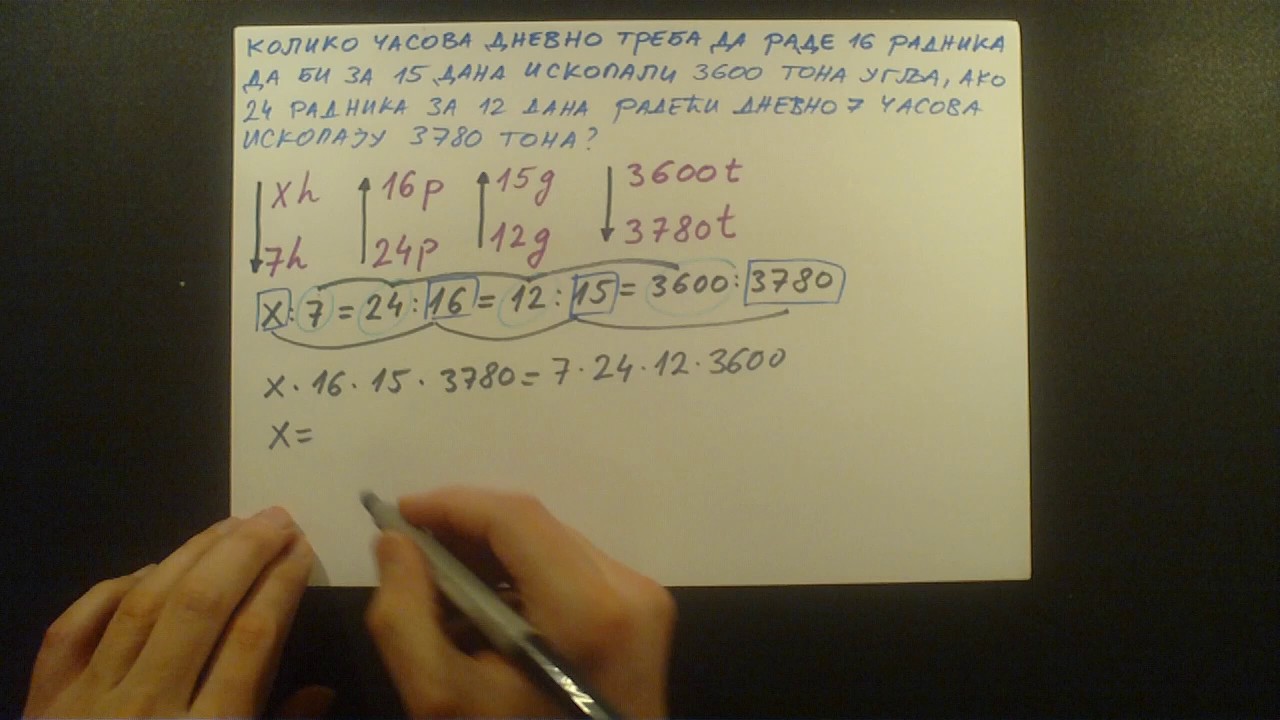 КОЛИКО ЧАСОВА ДНЕВНО ТРЕБА ДА РАДЕ 16 РАДНИКА
ДА БИ ЗА 15 ДАНА ИСКОПАЛИ 3600 ТОНА УГЉА, АКО
24 РАДНИКА ЗА 12 ДАНА РАДЕЋИ ДНЕВНО 7 ЧАСОВА
ИСКОПАЈУ 3780 ТОНА?
xh 16р 15g 3600t
7h 24р 12g 3780t
x:7=24:16=12:15=3600:3780
x·16·15·3780=7·24·12·3600
x=